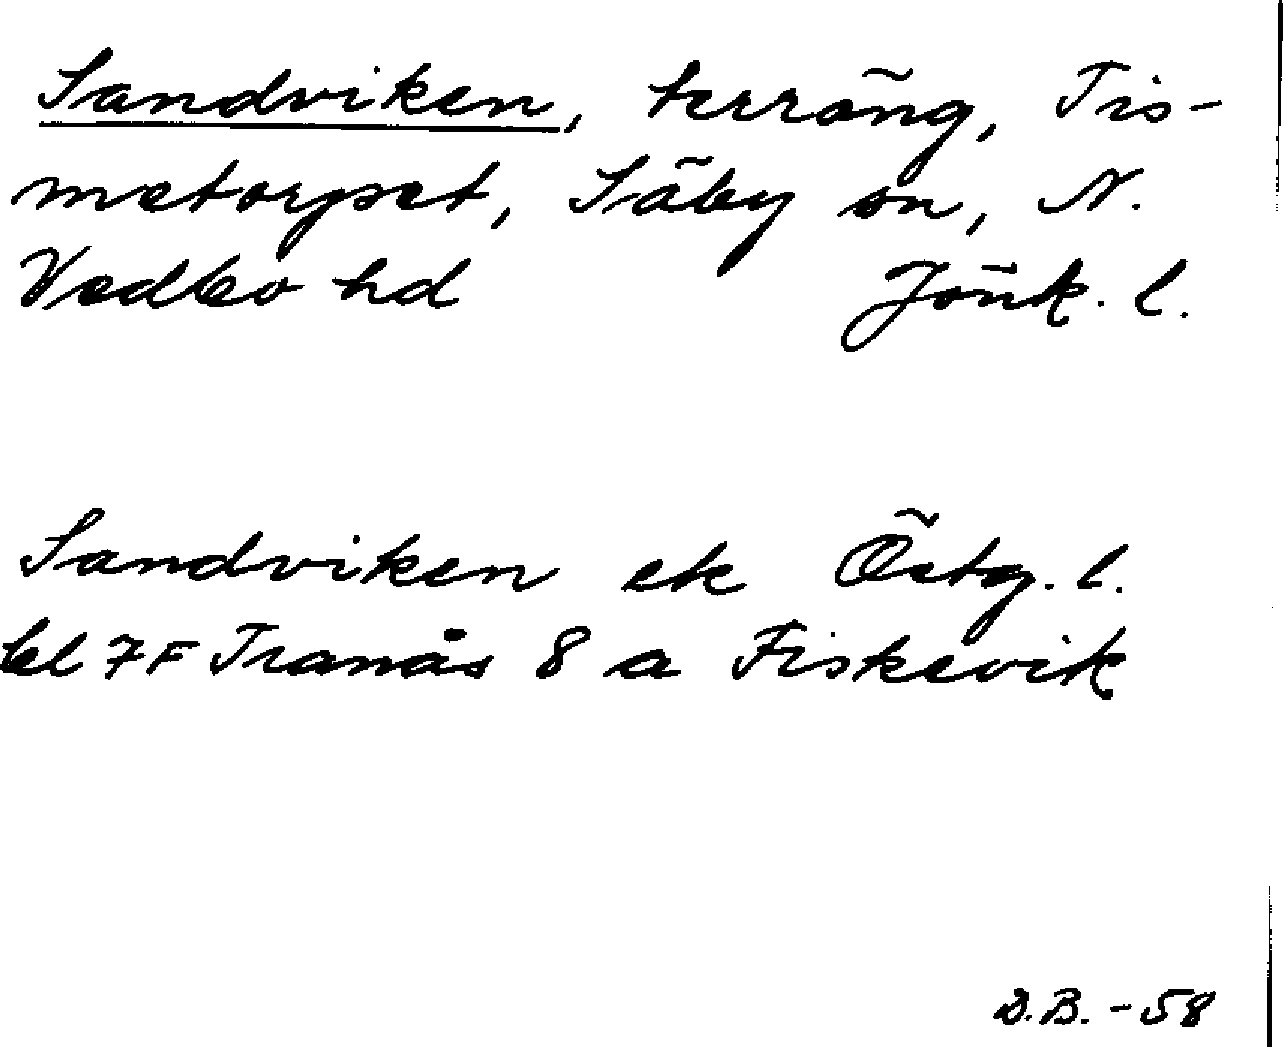 Sandviken, terräng, Tis-
metorpet, Säby sn, N.
Vedbo hd Jönk. l.
Sandviken ek Östg. l.
bl 7F Tranås 8 a Fiskevik
D.B. -58